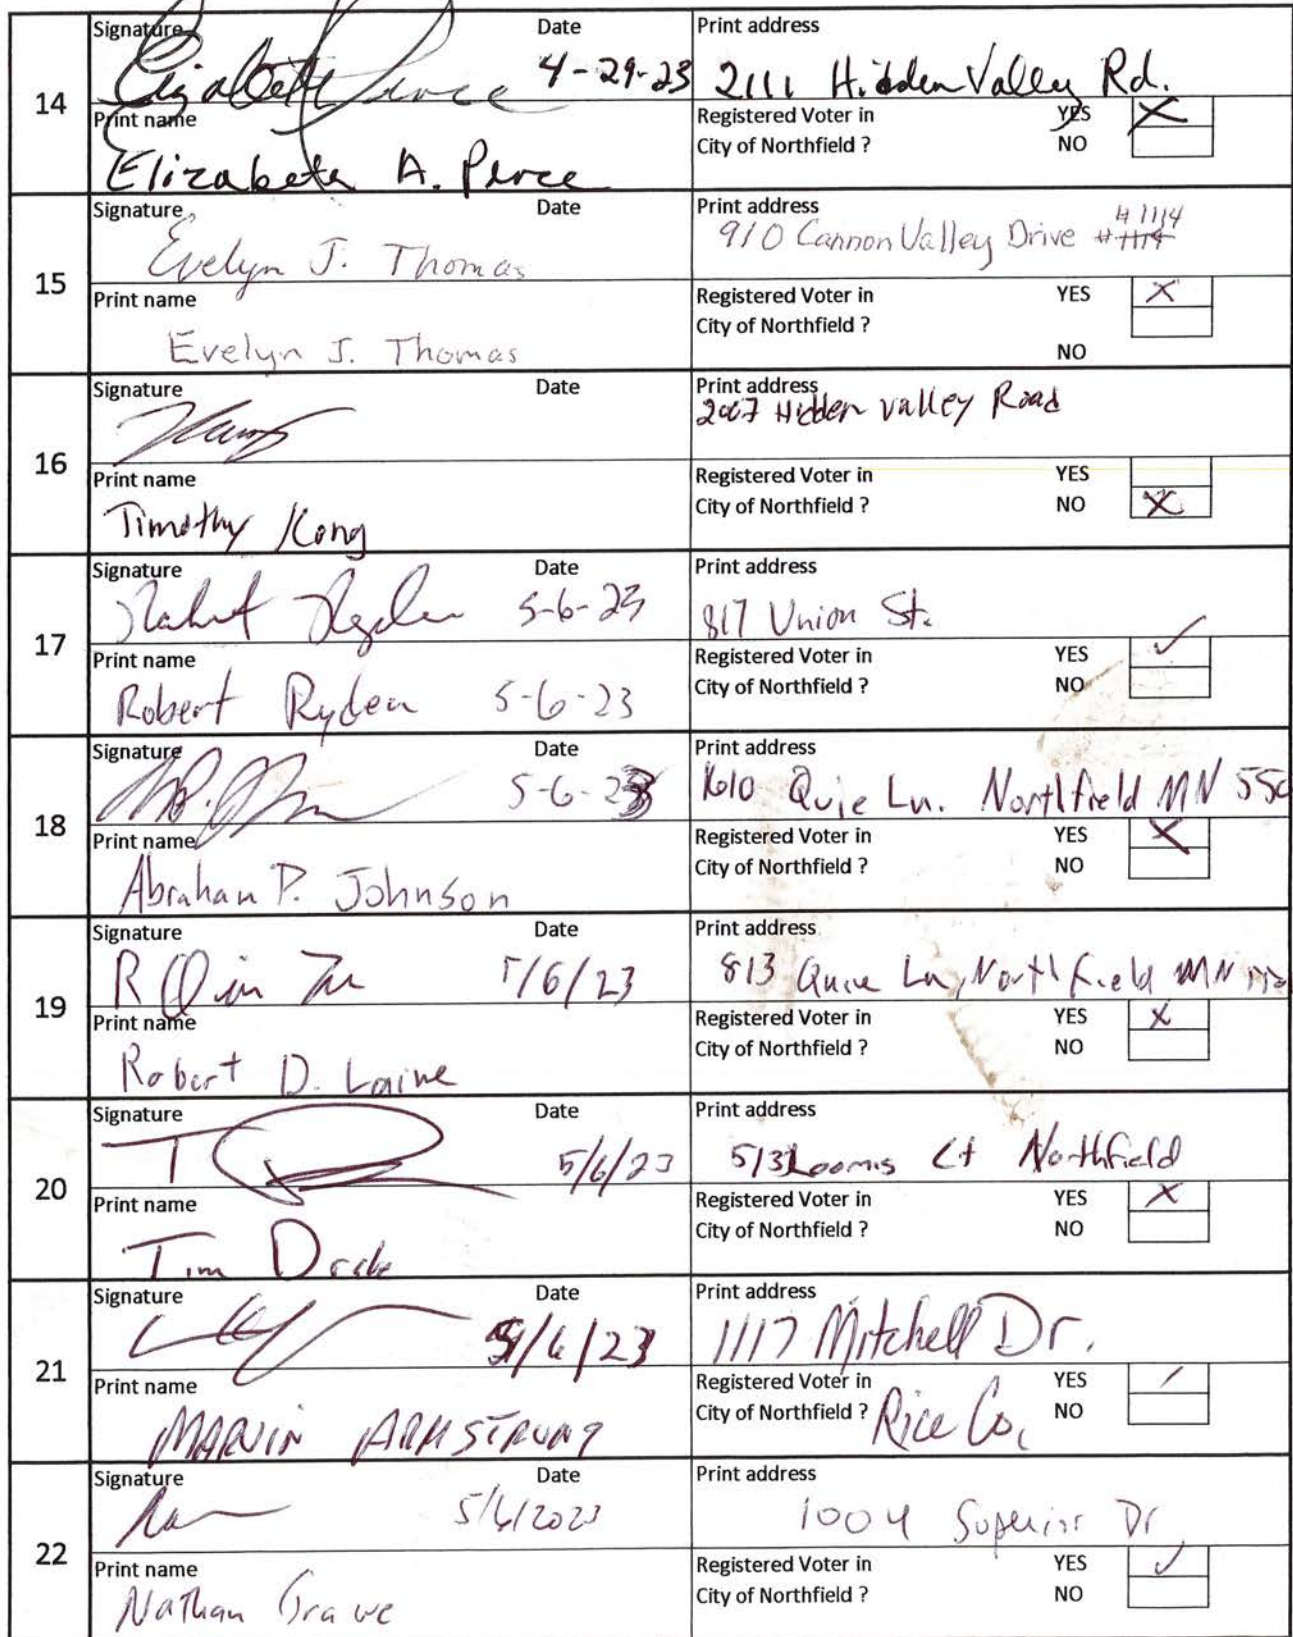 14
Signature Date
Elizabeth Pierce 4-29-23
Print address
2111 Hidden Valley Rd.
Print name
Elizabeth A. Pierce
Registered Voter in YES X
City of Northfield ? NO
15
Signature Date
Evelyn J. Thomas
Print address
910 Cannon Valley Drive #1114 #1114
Print name
Evelyn J. Thomas
Registered Voter in YES X
City of Northfield ?
NO
16
Signature Date
Print address
2007 Hidden valley Road
Print name
Timothy Kong
Registered Voter in YES
City of Northfield ? NO X
17
Signature Date
Robert Ryden 5-6-23
Print address
817 Union St.
Print name
Robert Ryden 5-6-23
Registered Voter in YES ✓
City of Northfield ? NO
18
Signature Date
5-6-23
Print address
1610 Quie Ln. Northfield MN 550
Print name
Abraham P. Johnson
Registered Voter in YES X
City of Northfield ? NO
19
Signature Date
5/6/23
Print address
813 Quie Ln, Northfield MN 550
Print name
Robert D. Laine
Registered Voter in YES X
City of Northfield ? NO
20
Signature Date
5/6/23
Print address
513 Loomis Ct Northfield
Print name
Tim Drake
Registered Voter in YES X
City of Northfield ? NO
21
Signature Date
5/6/23
Print address
1117 Mitchell Dr.
Print name
MARVIN ARMSTRONG
Registered Voter in YES /
City of Northfield ? Rice Co. NO
22
Signature Date
5/6/2023
Print address
1004 Superior Dr
Print name
Nathan Grawe
Registered Voter in YES ✓
City of Northfield ? NO